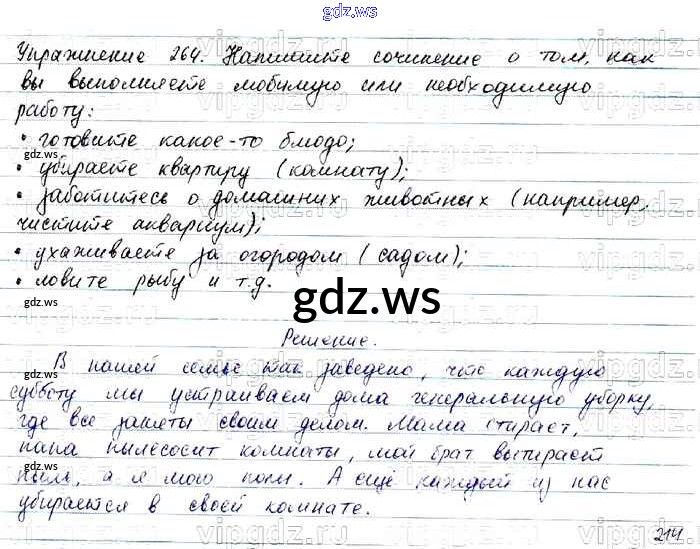 gdz.ws
Упражнение 264. Напишите сочинение о том, как
вы выполняете любимую или необходимую
работу:
• готовите какое-то блюдо;
gdz.ws
• убираете квартиру (комнату);
• заботитесь о домашних животных (например,
чистите аквариум);
gdz.ws
• ухаживаете за огородом (садом);
• ловите рыбу и т.д.
gdz.ws
gdz.ws
Решение.
В нашей семье так заведено, что каждую
gdz.ws
субботу мы устраиваем дома генеральную уборку,
где все заняты своим делом. Мама стирает,
папа пылесосит комнаты, мой брат вытирает
gdz.ws
пыль, а я мою полы. А ещё каждый из нас
убирается в своей комнате.
214
gdz.ws